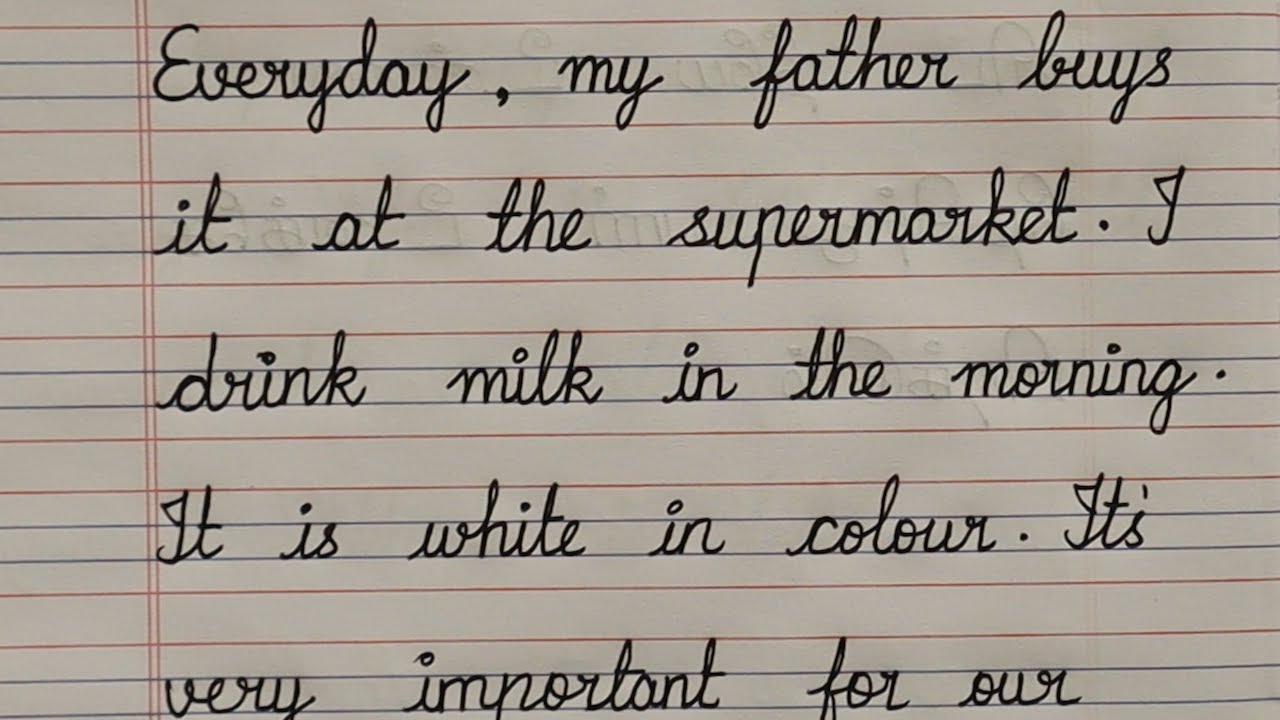 Everyday, my father buys
it at the supermarket. I
drink milk in the morning.
It is white in colour. It's
very important for our